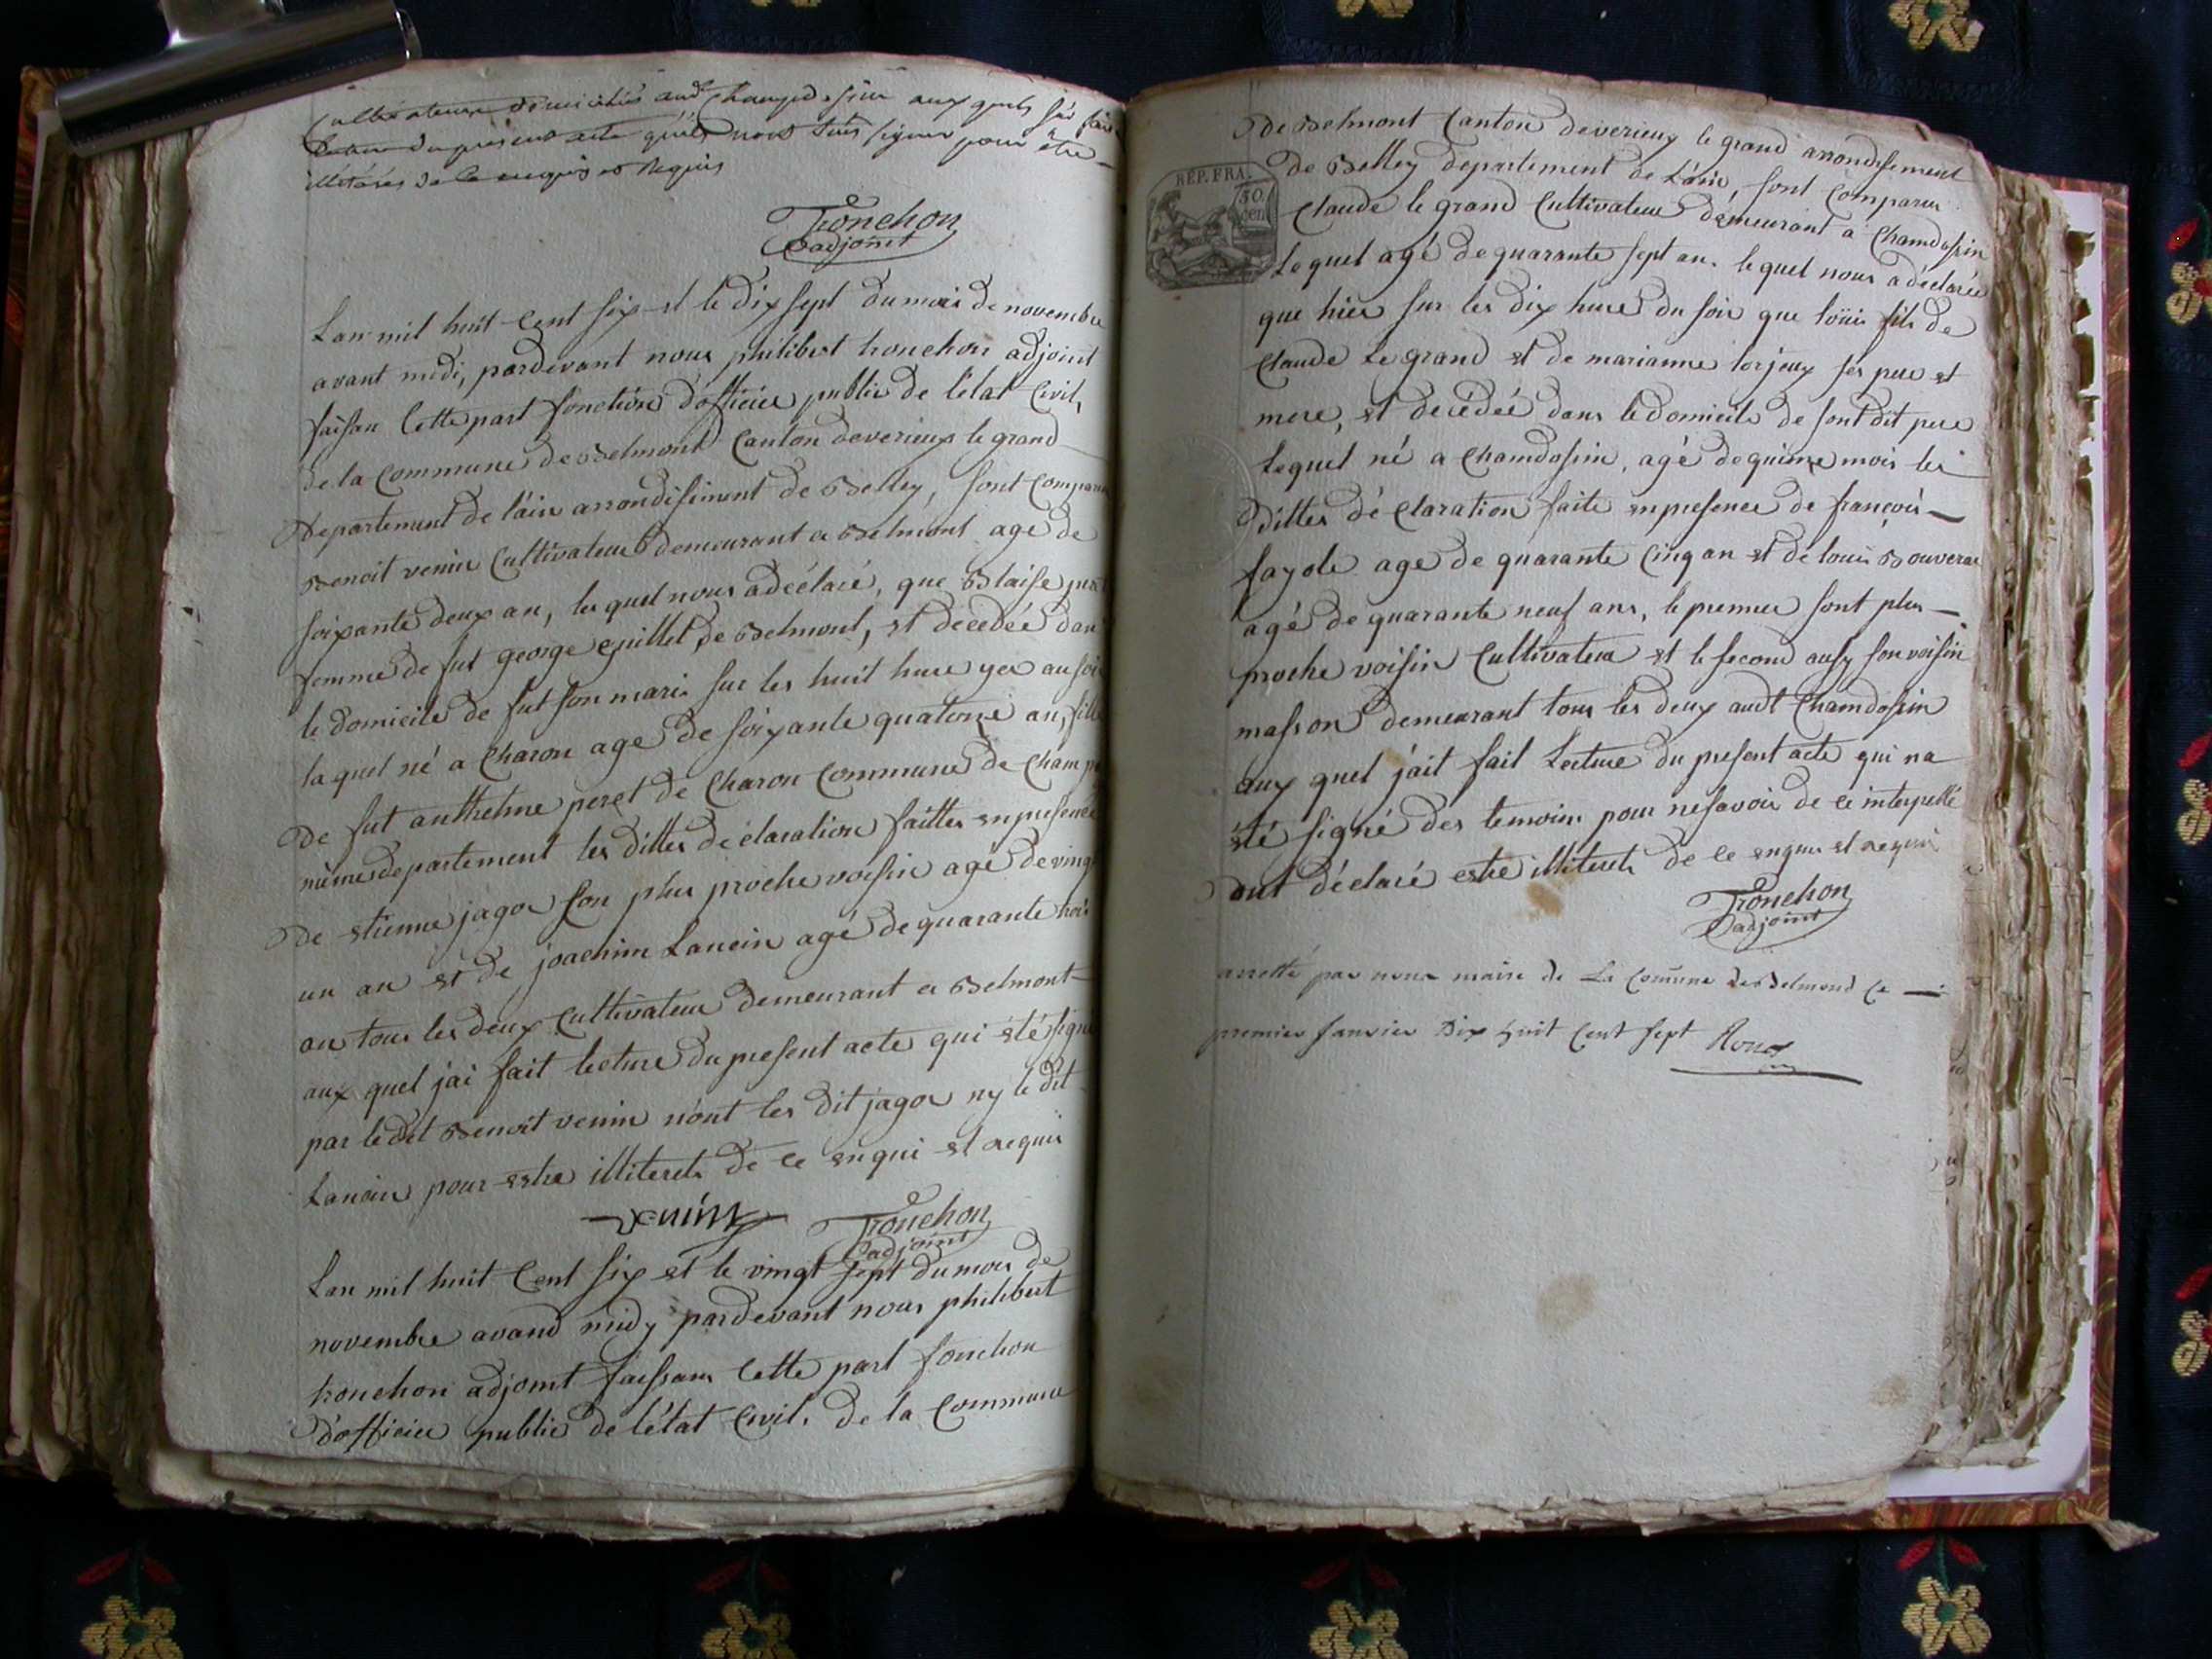 Cultivateurs domiciliés audt Champdossin aux quels j'ai fait
lecture du présent acte qu'ils nont sus signer pour être
illitérés de ce enquis et Requis
Tronchon
adjoint
Lan mil huit Cent six et le dix sept du mois de novembre
avant midi, pardevant nous philibert tronchon adjoint
faisan Cette part fonction d'officier public de l'état Civil,
de la Commune de Belmont Canton de verieux le grand
Departement de l'ain arrondisiment de Belley, sont Comparu
Benoit venin Cultivateur demeurant a Belmont age de
soixante deux an, le quel nous a déclaré, que Blaise
femme de fut george guillet, de Belmont, et décédéé dan
le domicile de fut son mari sur les huit hure yer au soir
la quel né a Charon age de soixante quatorze an, fille
De fut anthelme peret de Charon Commune de Champ
même departement les dittes déclaration faittes en presence
De etienne jagou son plus proche voisin agé de vingt
un an et de joachim Lancin agé de quarante trois
an tous les deux Cultivateur demeurant a Belmont
aux quel j'ai fait lecture du present acte qui été signé
par le dit Benoit venin n'ont les dit jagou ny le dit
Lancin pour estre illiterets de ce enqui et requis
venin
Tronchon
adjoint
Lan mil huit Cent six et le vingt sept du mois de
novembre avand midy pardevant nous philibert
tronchon adjoint faissans Cette part fonction
d'officier public de l'état Civil. de la Commune
de Belmont Canton de verieux le grand arrondisement
REP. FRA.
50.
cen
de Belley departement de l'ain, sont Comparu
Claude le grand Cultivateur démeurant a Chamdosin
Le quel agé de quarante sept an. le quel nous a déclarée
que hier sur les dix hure du soir que loüis fils de
Claude Le grand et de marianne lorjeux ses pere et
mere, et décédéé dans le domicile de sont dit pere
Lequel né a Chamdosin, agé de quinze mois les
Dittes déclaration faite en presence de françois
fayole age de quarante Cinq an et de louis Bouverat
agé de quarante neuf ans, le premier sont plus
proche voisin Cultivateur et le second ausy son voisin
masson demeurant tous les deux audt Chamdosin
aux quel j'ait fait Lecture du present acte qui na
été signé des temoins pour ne savoir de ce interpellé
ont déclaré estre illiterets de ce enquis et requis
Tronchon
adjoint
arretté par nous maire de La Commune de Belmond Ce
premier Janvier Dix huit Cent sept